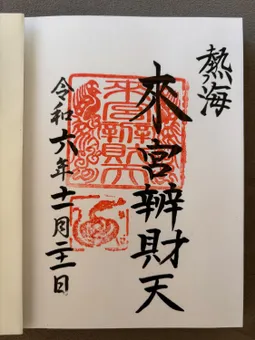 熱海
來宮辨財天
令和六年十一月二十一日